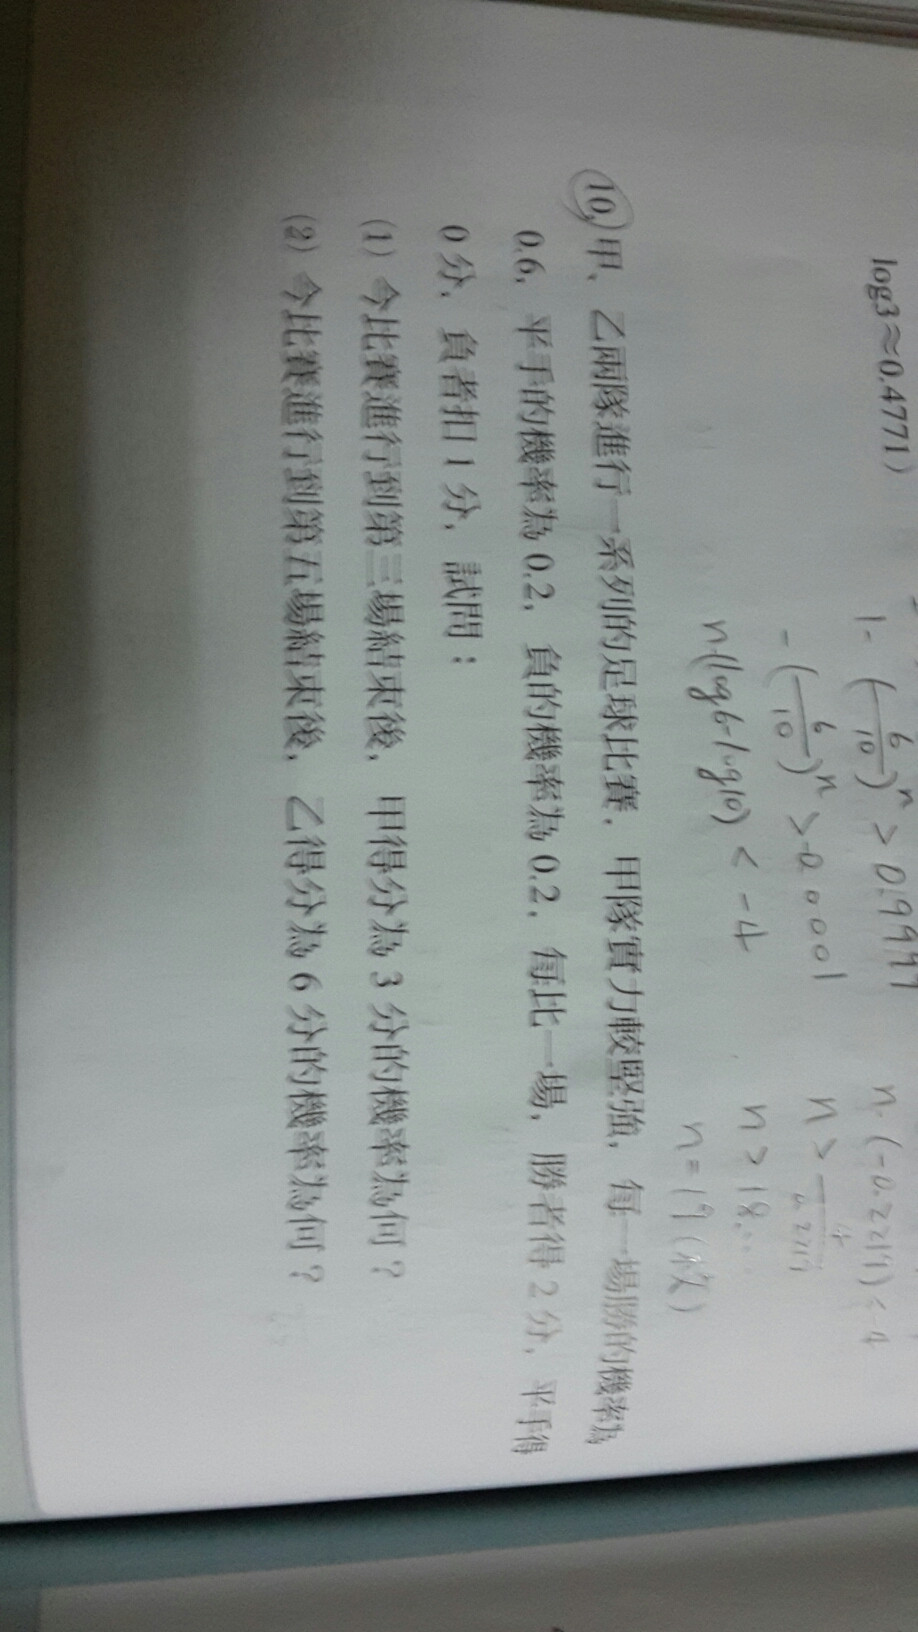 log3≈0.4771)
1-(6/10)ⁿ > 0.9999
-(6/10)ⁿ > -0.0001
n(log6-log10) < -4
n·(-0.2219) < -4
n > 4/0.2219
n > 18...
n = 19 (次)
10. 甲、乙兩隊進行一系列的足球比賽，甲隊實力較堅強，每一場勝的機率為
0.6，平手的機率為 0.2，負的機率為 0.2，每比一場，勝者得 2 分，平手得
0 分，負者扣 1 分，試問：
(1) 今比賽進行到第三場結束後，甲得分為 3 分的機率為何？
(2) 今比賽進行到第五場結束後，乙得分為 6 分的機率為何？